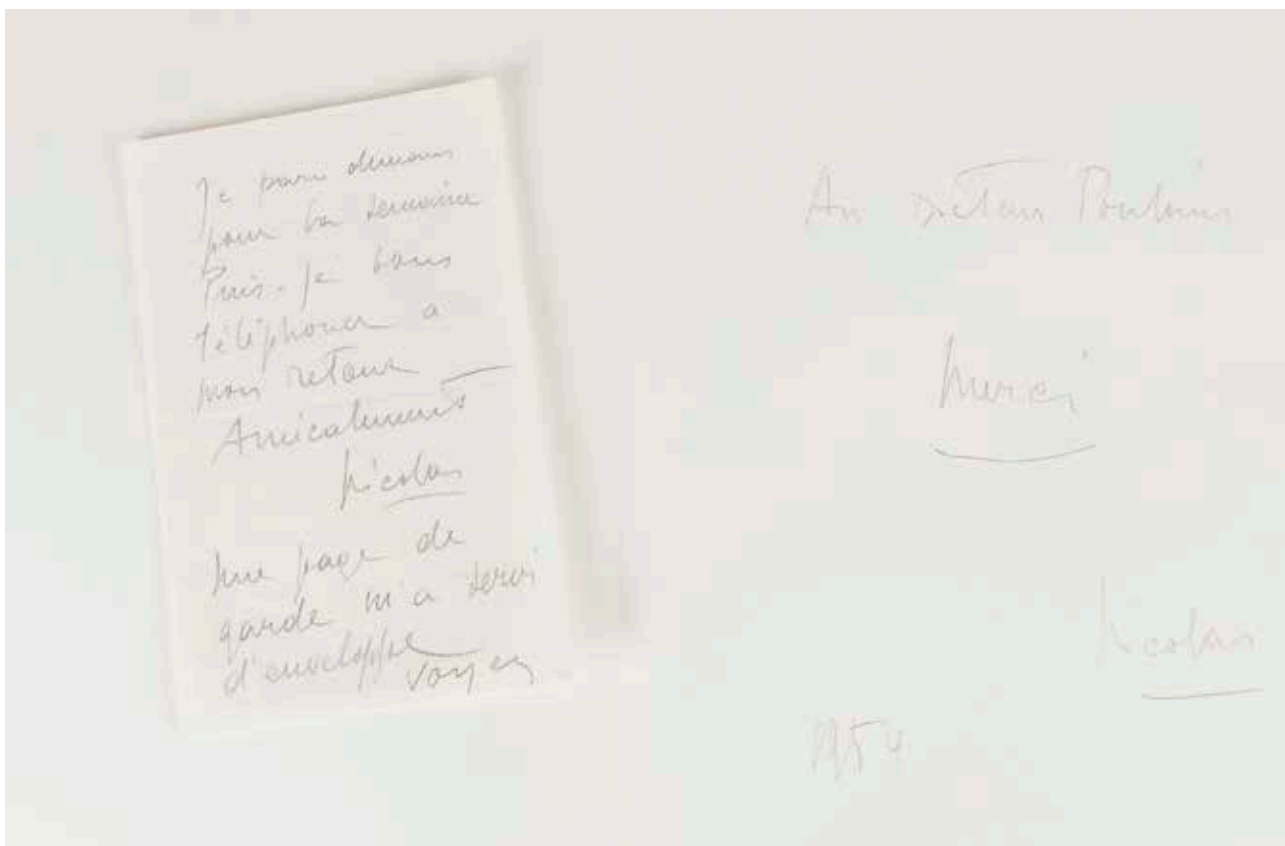 Je pars demain
pour la semaine
Puis-je vous
téléphoner a
mon retour —
Amicalement
Nicolas
Une page de
garde m'a servi
d'enveloppe
voyez
Au Docteur
Merci
Nicolas
1954